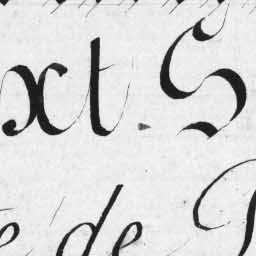 xt. S
e de